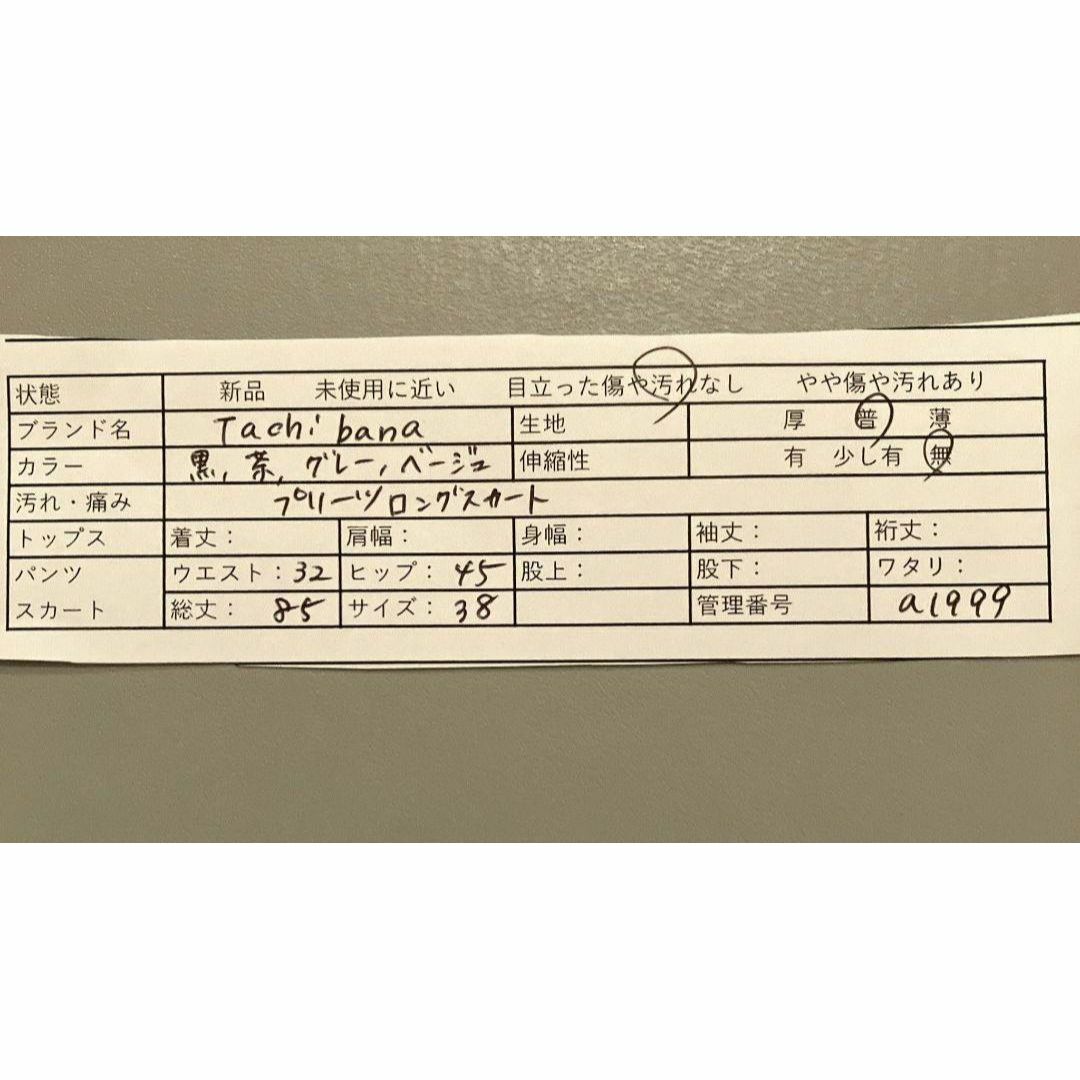 状態 新品 未使用に近い 目立った傷や汚れなし やや傷や汚れあり
ブランド名 Tachibana 生地 厚 普 薄
カラー 黒, 茶, グレー, ベージュ 伸縮性 有 少し有 無
汚れ・痛み プリーツロングスカート
トップス 着丈: 肩幅: 身幅: 袖丈: 裄丈:
パンツ ウエスト:32 ヒップ:45 股上: 股下: ワタリ:
スカート 総丈:85 サイズ:38 管理番号 a1999